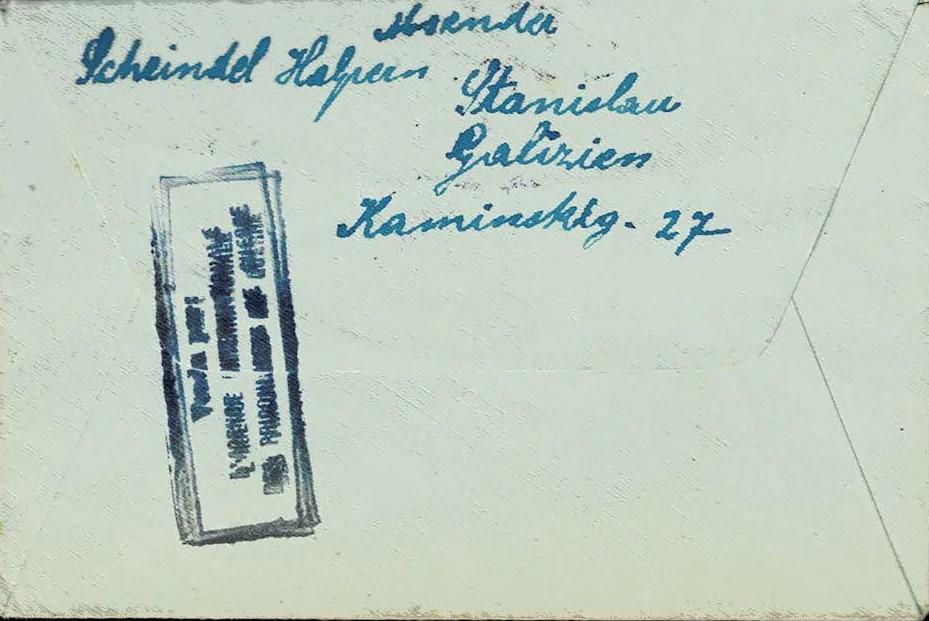 Absender
Scheindel Halpern
Stanislau
Galizien
Kaminskig. 27
L'AGENCE INTERNATIONALE
DES PRISONNIERS DE GUERRE